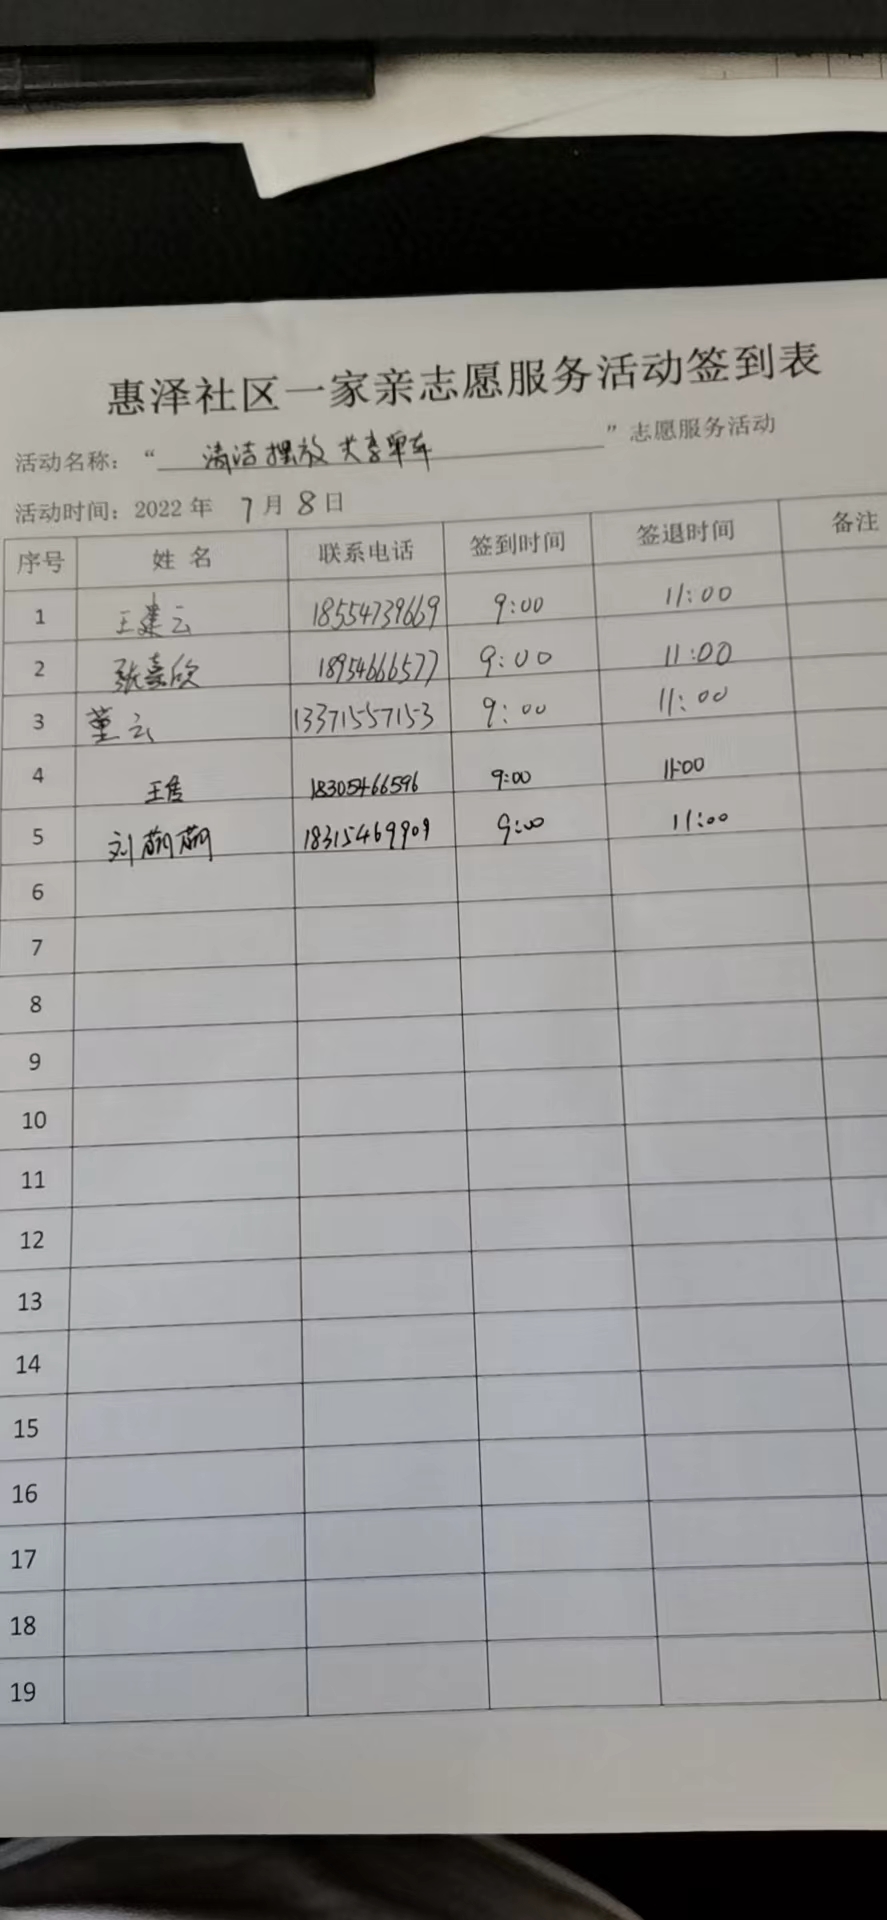 惠泽社区一家亲志愿服务活动签到表
活动名称：“ 清洁摆放共享单车 ”志愿服务活动
活动时间：2022 年 7 月 8 日
序号 姓 名 联系电话 签到时间 签退时间 备注
1 王建云 18554739669 9:00 11:00
2 张嘉欣 18954666577 9:00 11:00
3 董云 13371557153 9:00 11:00
4 18305466596 9:00 11:00
5 刘萌萌 18315469909 9:00 11:00
6
7
8
9
10
11
12
13
14
15
16
17
18
19